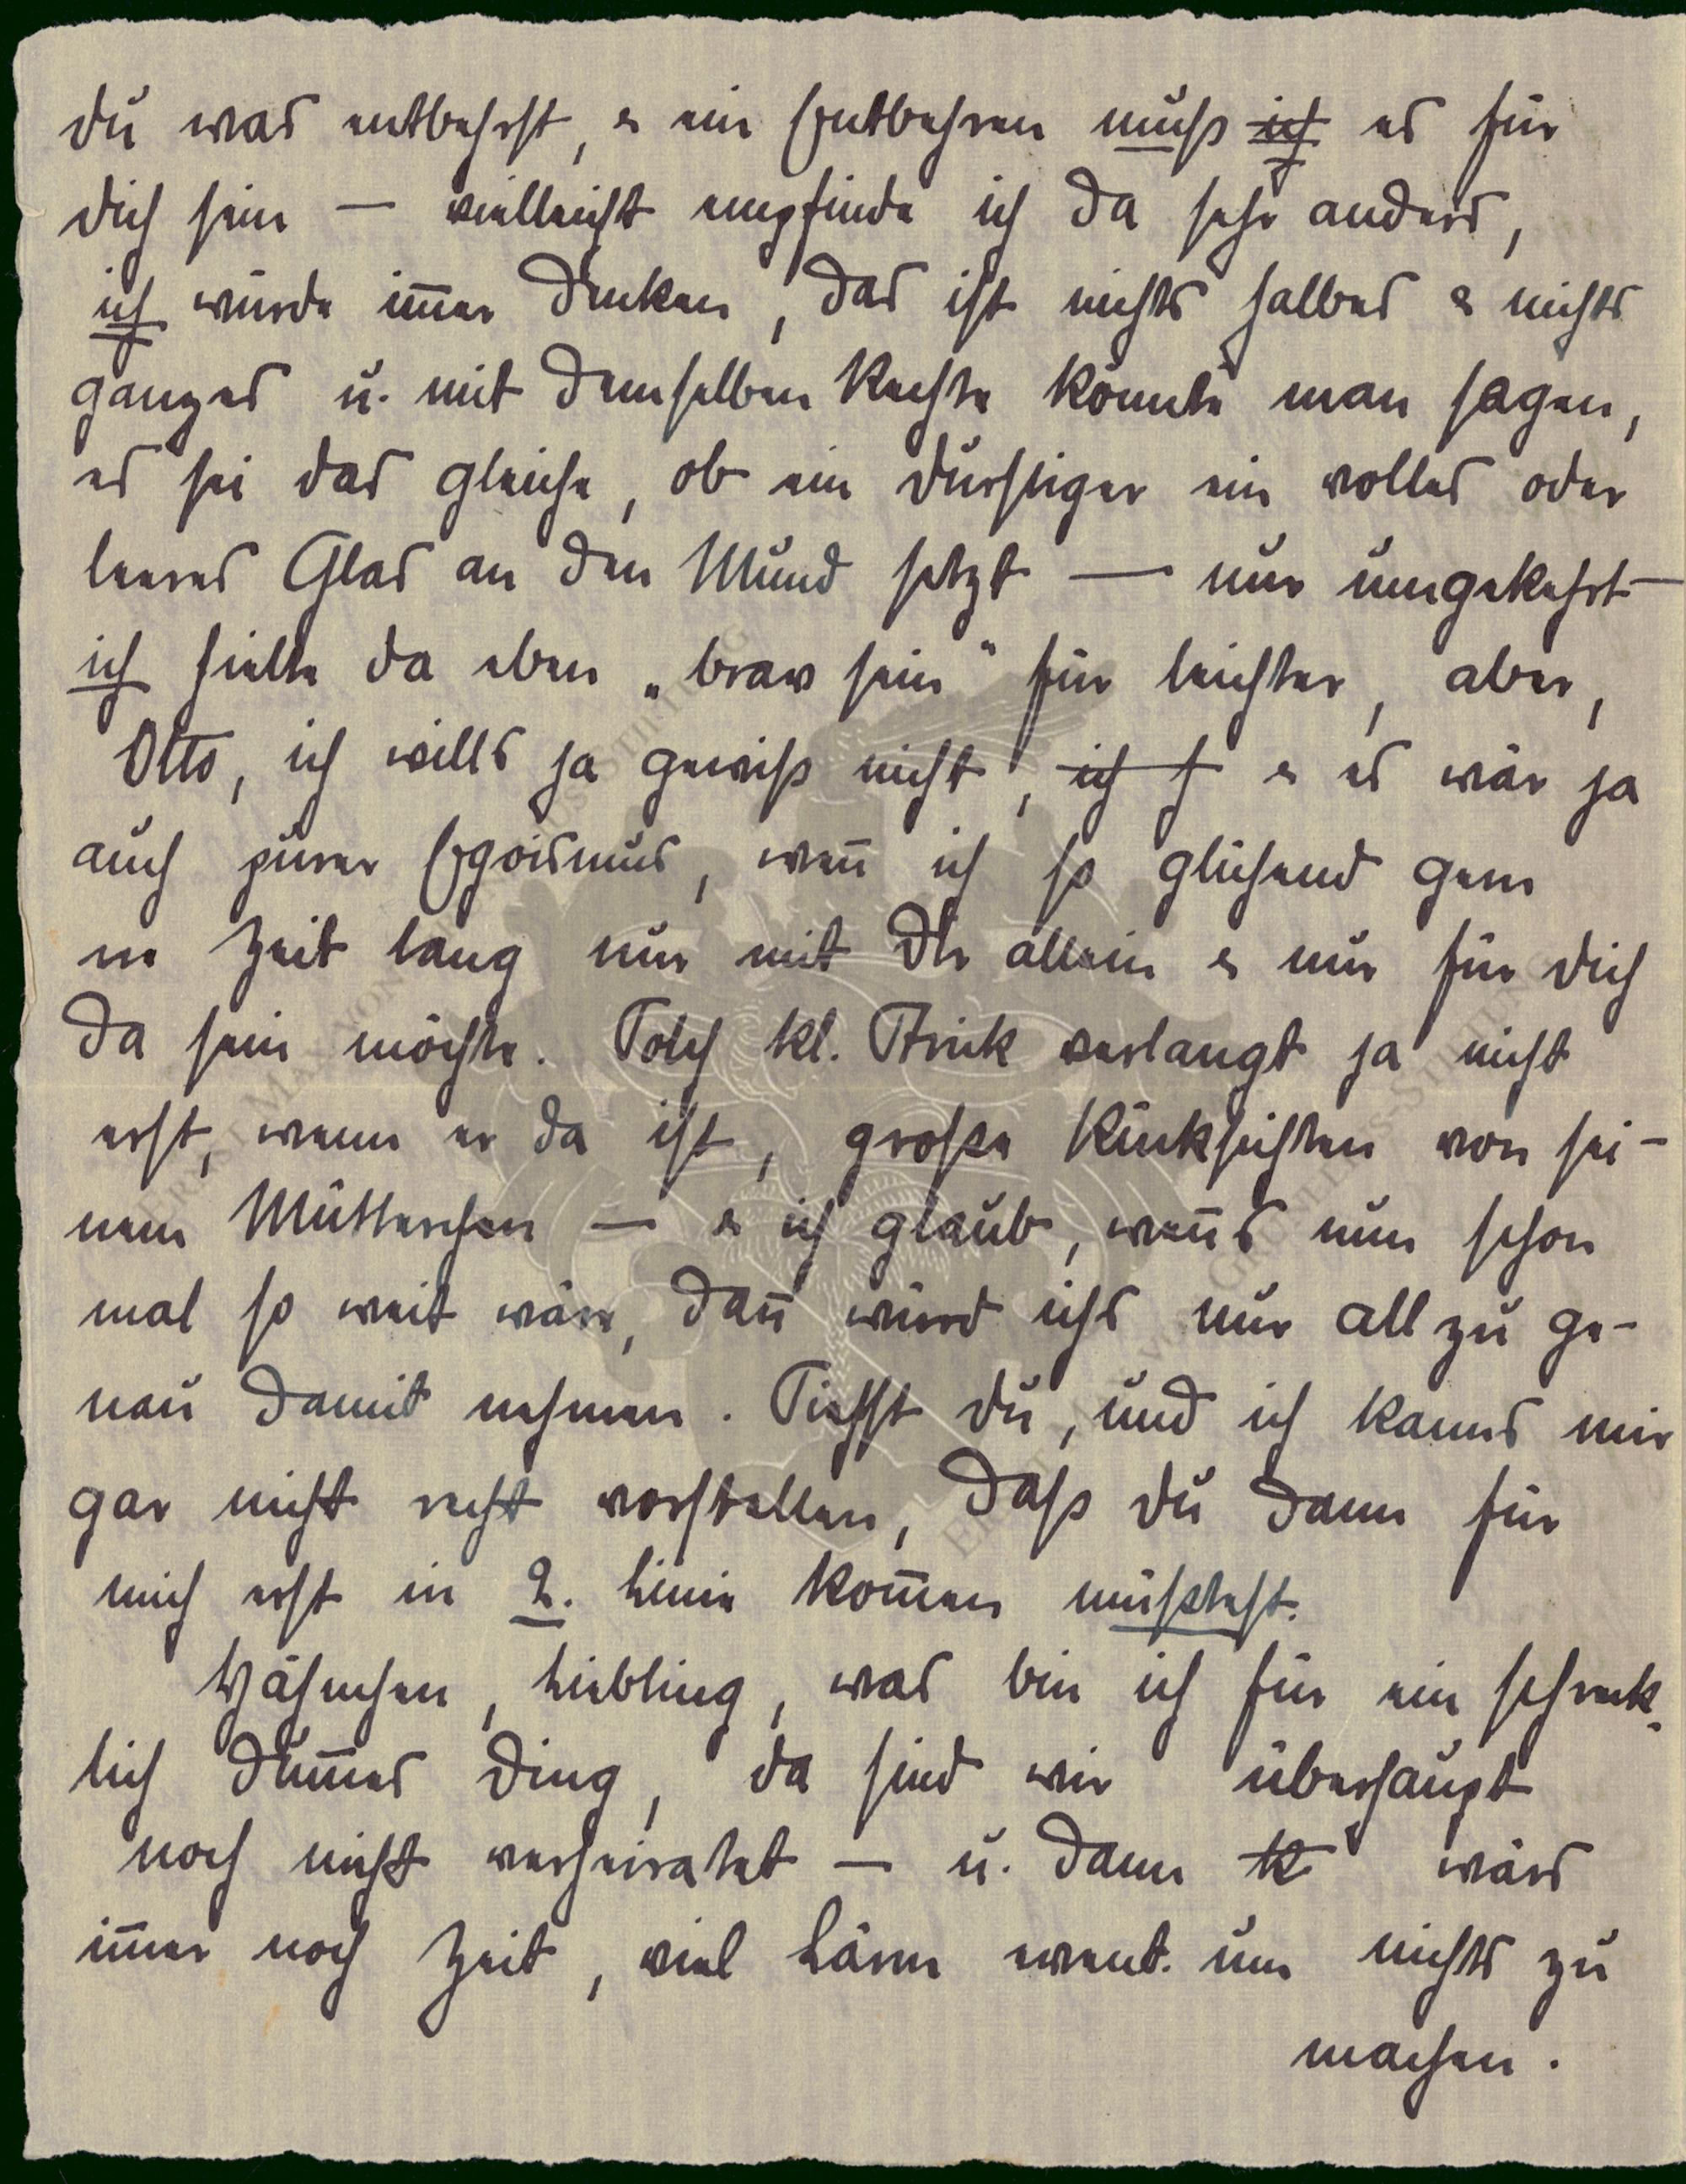 Du was entbehrst, & ein Entbehren muß ich es für
Dich sein — vielleicht empfinde ich da sehr anders,
ich würde im̄er denken, das ist nichts halbes & nichts
ganzes u. mit demselben Rechte könnte man sagen,
es sei das gleiche, ob ein durstiger ein volles oder
leeres Glas an den Mund setzt — nur umgekehrt —
ich hielte da eben „brav sein" für leichter, aber,
Otto, ich wills ja gewiß nicht, ich f & es wär ja
auch purer Egoismus, wen̄ ich so glühend gern
ne Zeit lang nur mit Dir allein & nur für Dich
da sein möchte. Solch kl. Strick verlangt ja nicht
erst, wenn er da ist, große Rücksichten von sei-
nem Mütterchen — & ich glaub, wen̄s nun schon
mal so weit wäre, dan̄ würd ichs nur all zu ge-
nau damit nehmen. Siehst Du, und ich kanns mir
gar nicht recht vorstellen, daß Du dann für
mich erst in 2. Linie kom̄en müßtest.
Hähnchen, Liebling, was bin ich für ein schreck-
lich dum̄es Ding, da sind wir überhaupt
noch nicht verheiratet — u. dann k wärs
im̄er noch Zeit, viel Lärm event. um nichts zu
machen.